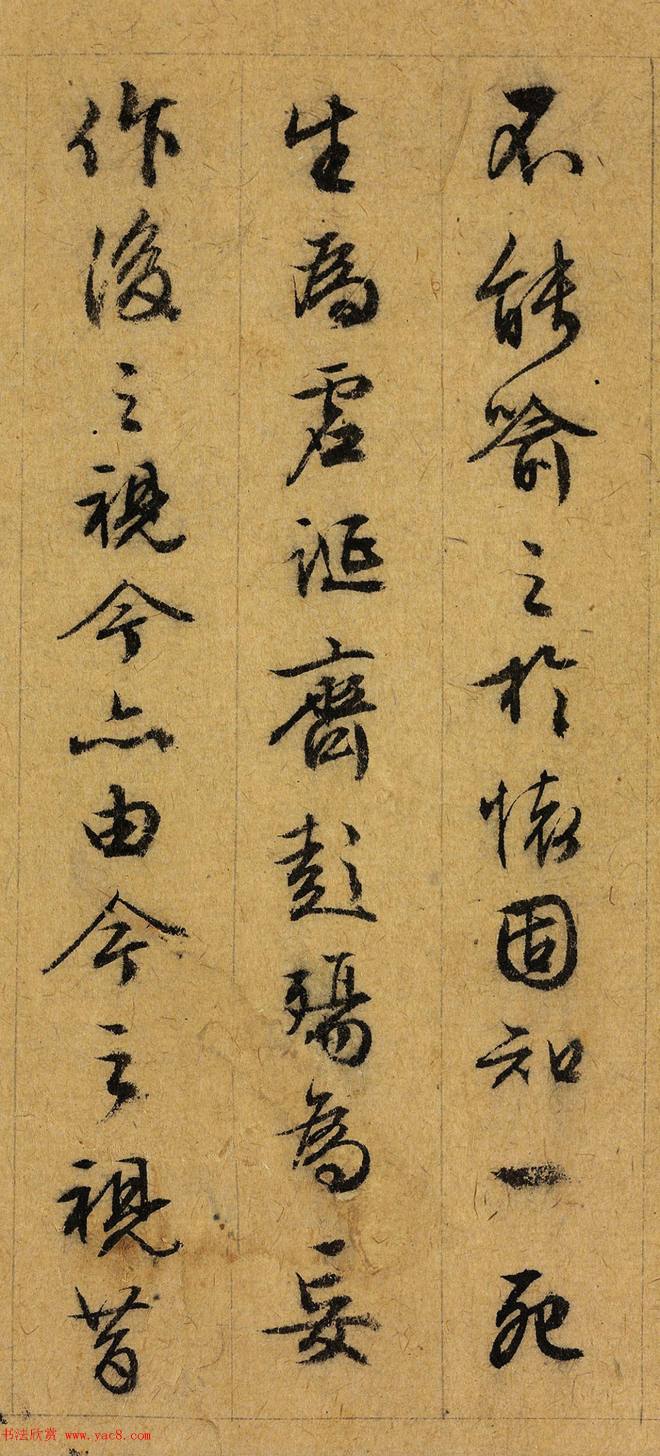 不能喻之於懷固知一死
生為虛誕齊彭殤為妄
作後之視今亦由今之視昔
书法欣赏 www.yac8.com